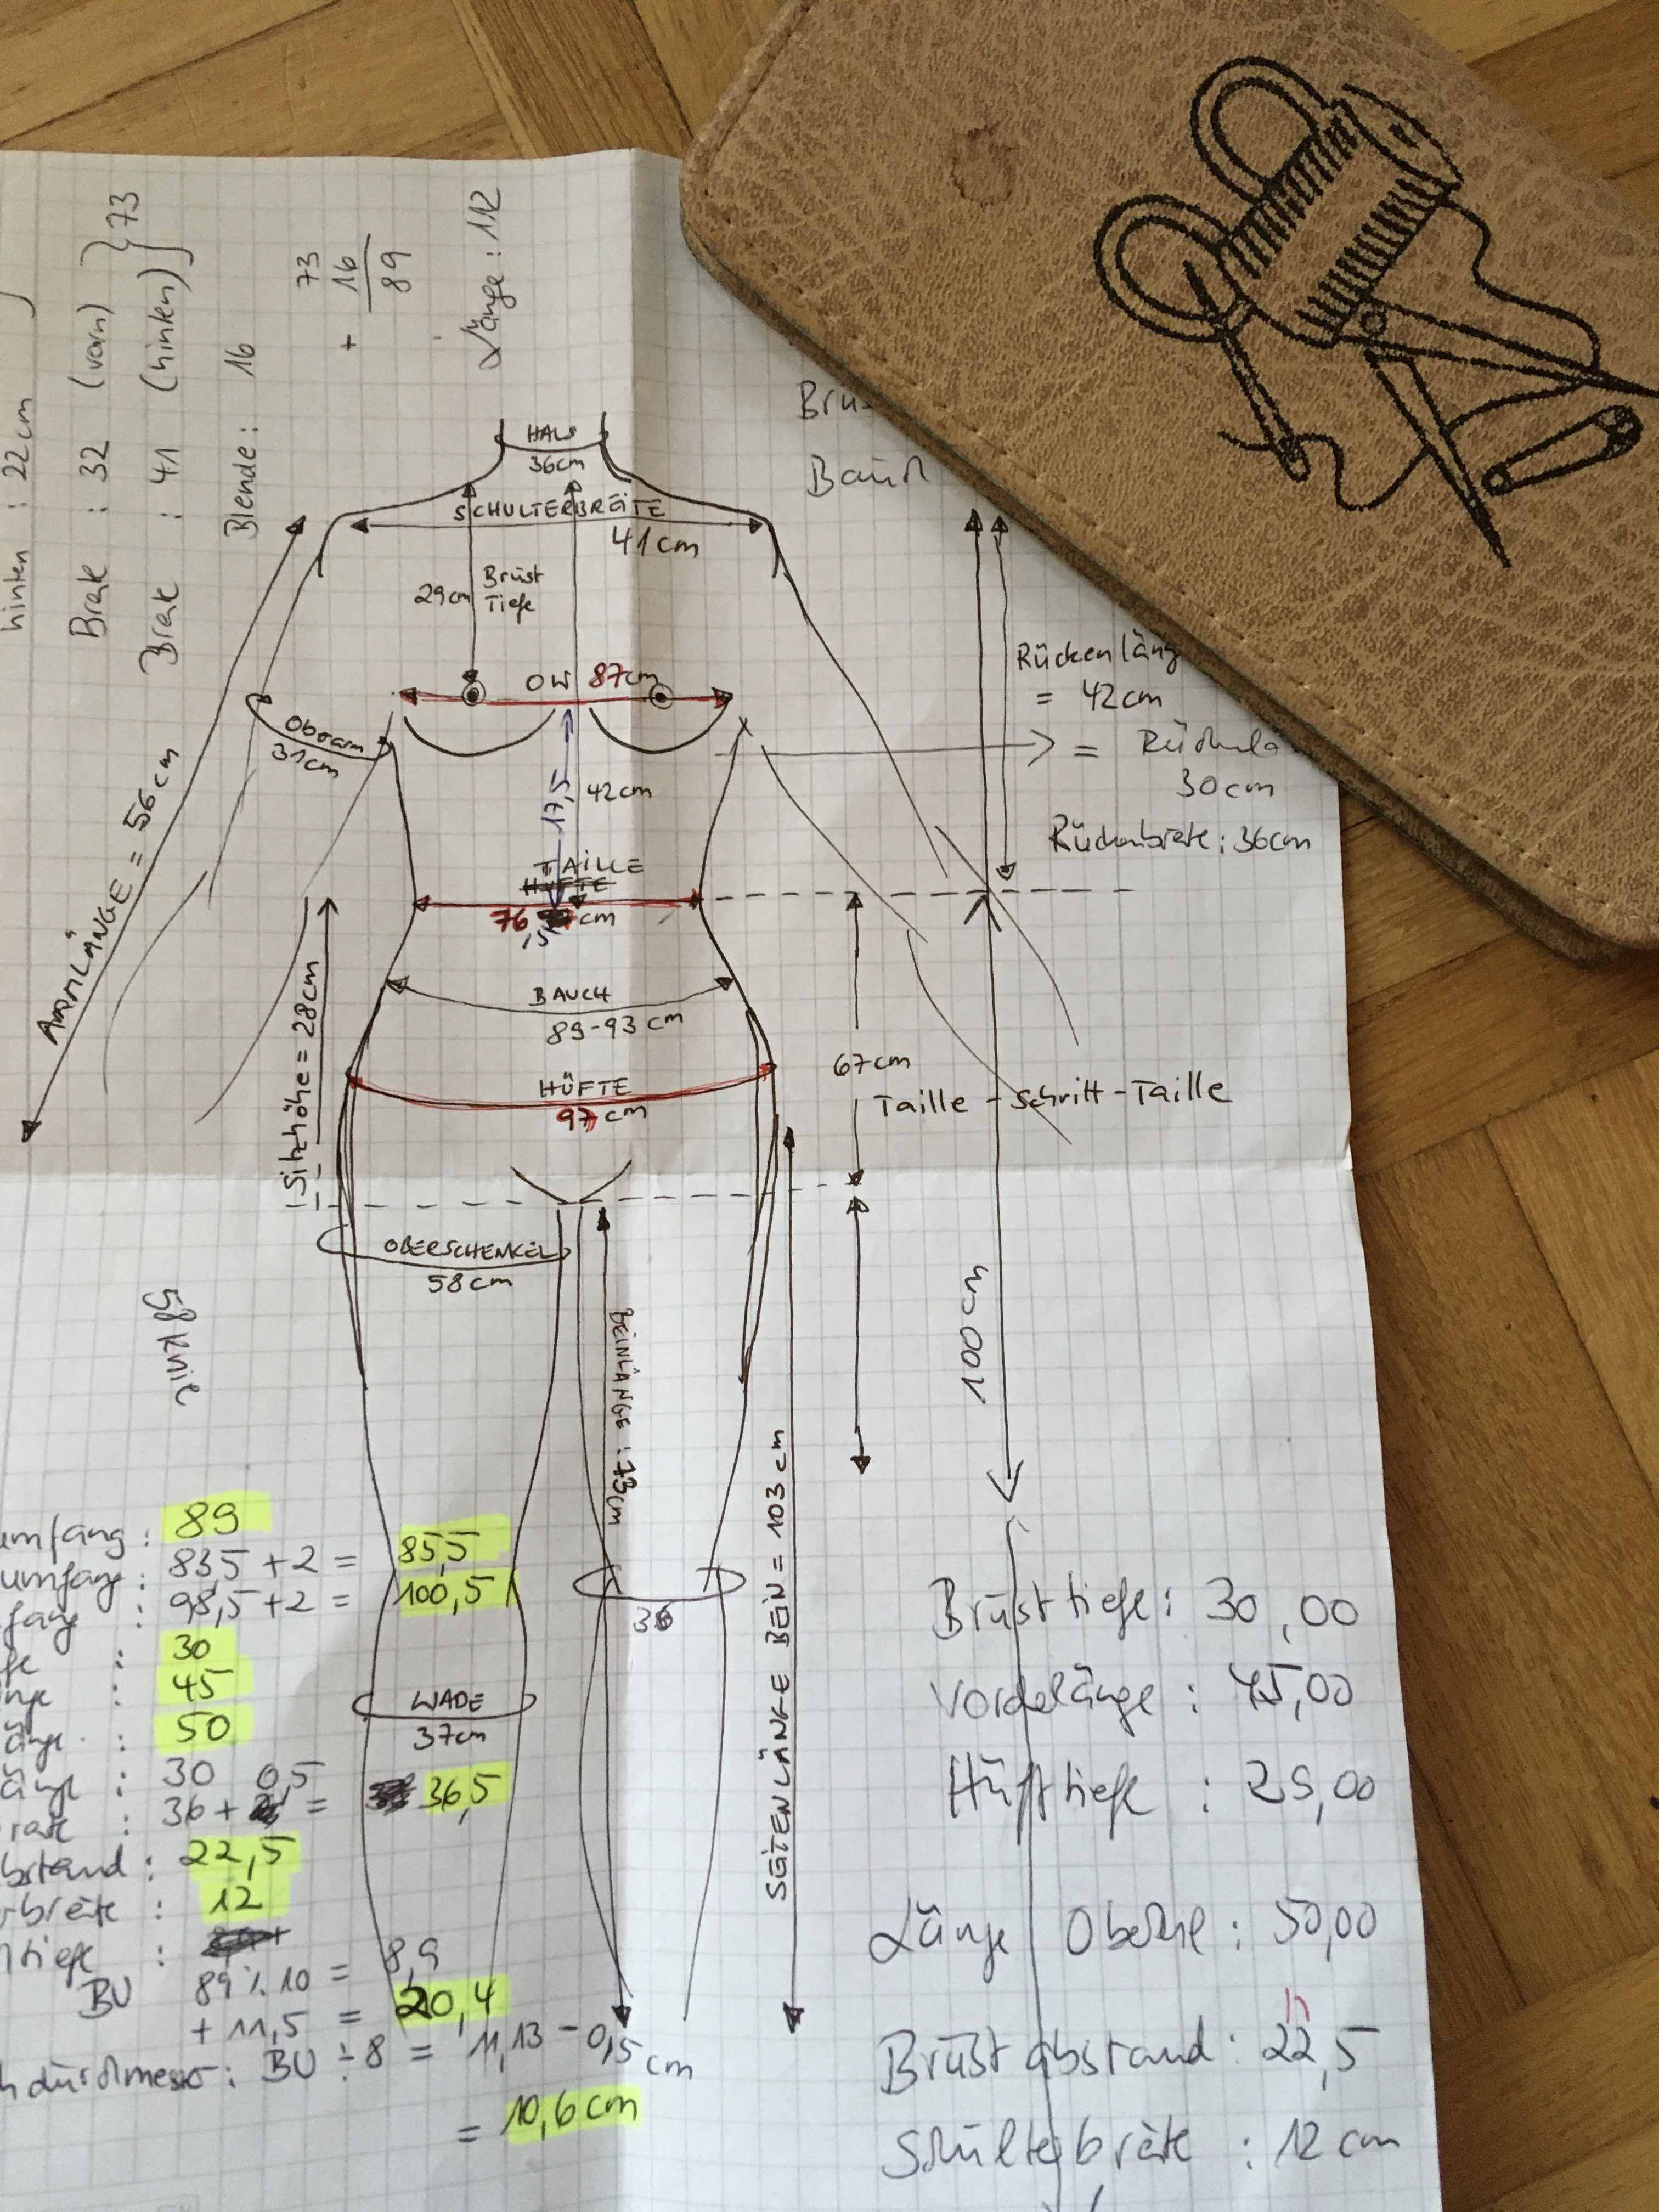 hinten : 22cm
Brak : 32 (vorn)
Brak : 41 (hinten)
} 73
Blende : 16
73
+ 16
89
Länge : 112
HALS
36cm
SCHULTERBREITE
41cm
29cm
Brust
Tiefe
OW 87cm
Oberarm
31cm
ARMLÄNGE = 56cm
17,5
42cm
TAILLE
HÜFTE
76,5 cm
BAUCH
89-93 cm
HÜFTE
97cm
Sitzhöhe = 28cm
OBERSCHENKEL
58cm
BEINLÄNGE : 73cm
SEITENLÄNGE BEIN = 103 cm
36
WADE
37cm
Brus
Bauch
Rückenläng
= 42cm
= Rückenlä
30cm
Rückenbreite : 36cm
67cm
Taille - Schritt - Taille
100cm
58 Knie
umfang : 89
umfang : 83,5 + 2 = 85,5
fang : 98,5 + 2 = 100,5
fe : 30
nge : 45
änge : 50
änge : 30
36 + 0,5 = 36,5
bstand : 22,5
breite : 12
tiefe :
BU 89 % 10 = 8,9
+ 11,5 = 20,4
durchmesser : BU ÷ 8 = 11,13 - 0,5 cm
= 10,6 cm
Brusttiefe : 30,00
Vordelänge : 45,00
Hüfttiefe : 25,00
Länge : 50,00
Brustabstand : 22,5
Schulterbreite : 12 cm